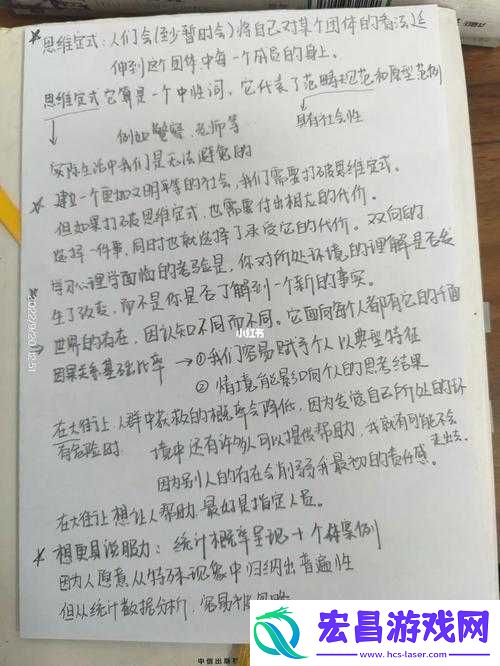 * 思维定式：人们会(至少暂时会)将自己对某个团体的看法延
伸到这个团体中每一个成员的身上。
思维定式它算是一个中性词，它代表了范畴规范和原型范例
例如警察、老师等
具有社会性
实际生活中我们是无法避免的
* 建立一个更加文明平等的社会，我们需要打破思维定式。
但如果打破思维定式，也需要付出相应的代价。
选择一件事，同时也就选择了承受它的代价。双向的
学习心理学面临的考验是，你对所处环境的理解是否发
生了改变，而不是你是否了解到一个新的事实。
世界的存在，因认知不同而不同。它面向每个人都有它的千面
因果关系基础比率 → ①我们容易赋予个人以典型特征
②情境能影响个人的思考结果
在大街上，人群中获救的概率会降低，因为发觉自己所处的环
有危险时 境中还有许多人可以提供帮助，我就有可能不会
走出去。
因为别人的存在会削弱我最初的责任感。
在大街上想让人帮助，最好是指定人员。
* 想更具说服力：统计概率呈现+个体案例
因为人愿意从特殊现象中归纳出普遍性
但从统计数据分析，容易被忽略
2022/9/20 12:51
小红书
中信出版
宏昌游戏网
www.hcs-laser.com